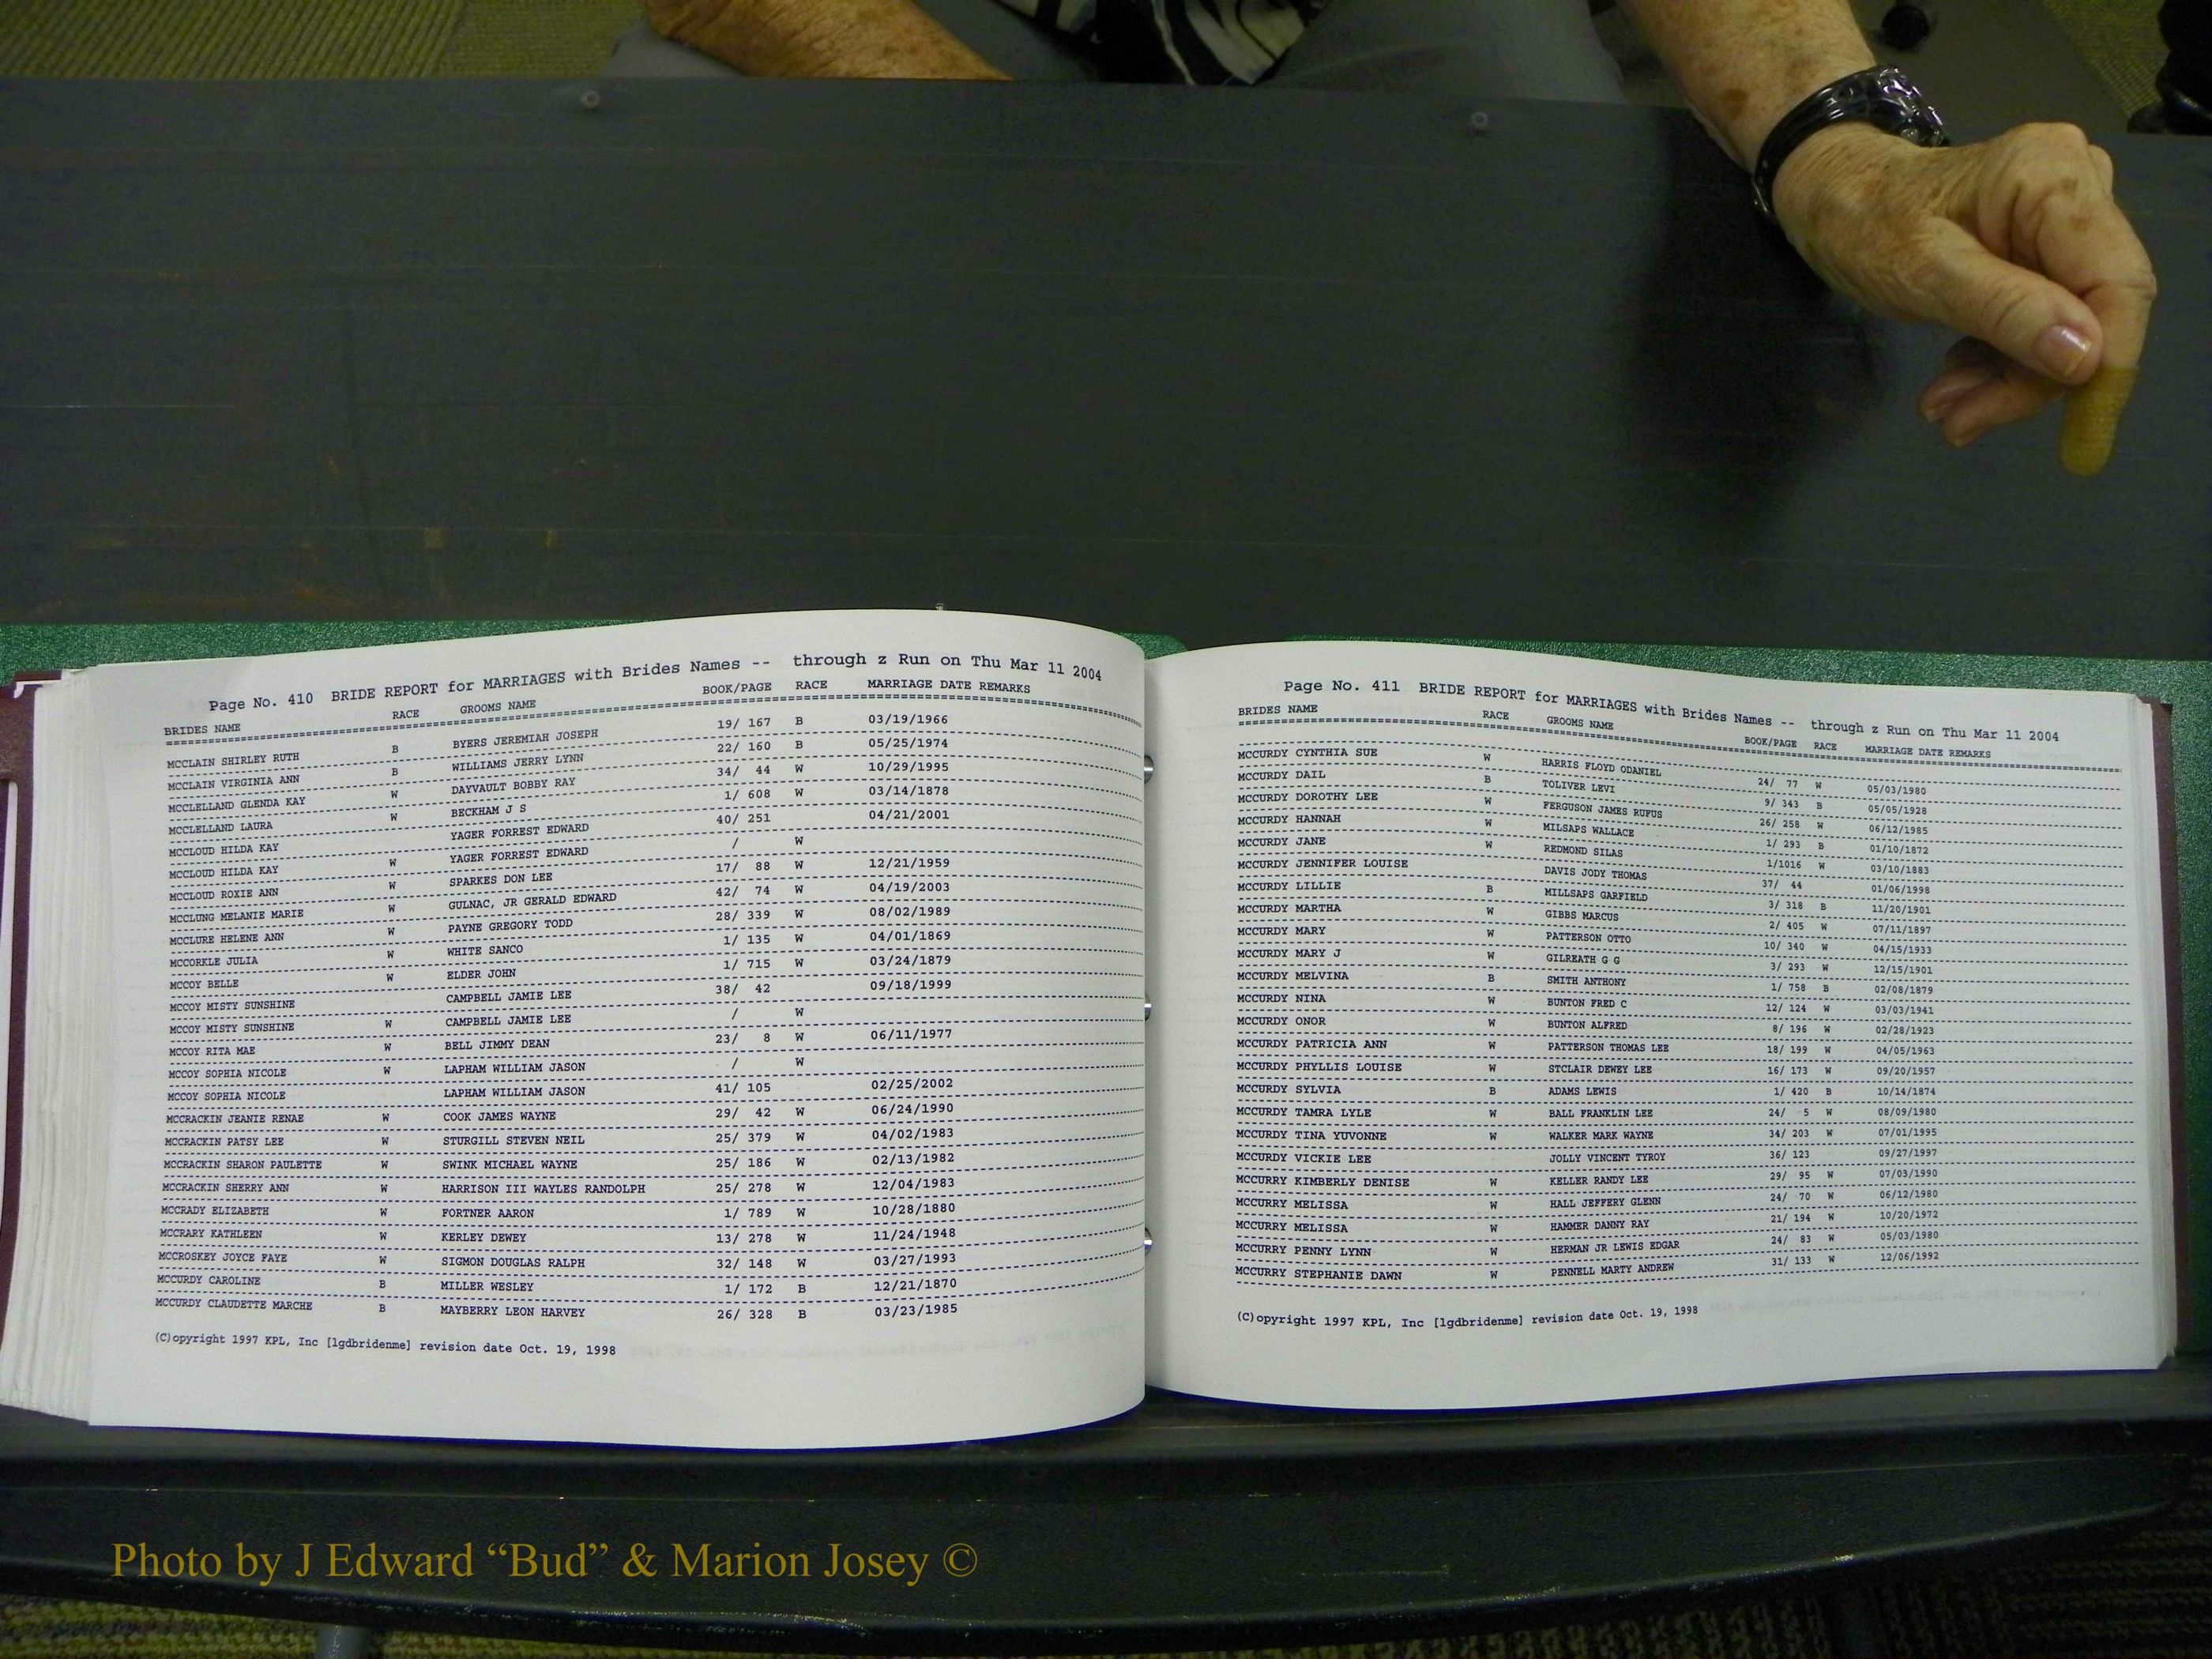 Page No. 410 BRIDE REPORT for MARRIAGES with Brides Names -- through z Run on Thu Mar 11 2004
BRIDES NAME RACE GROOMS NAME BOOK/PAGE RACE MARRIAGE DATE REMARKS
MCCLAIN SHIRLEY RUTH B BYERS JEREMIAH JOSEPH 19/ 167 B 03/19/1966
MCCLAIN VIRGINIA ANN B WILLIAMS JERRY LYNN 22/ 160 B 05/25/1974
MCCLELLAND GLENDA KAY W DAYVAULT BOBBY RAY 34/ 44 W 10/29/1995
MCCLELLAND LAURA W BECKHAM J S 1/ 608 W 03/14/1878
MCCLOUD HILDA KAY YAGER FORREST EDWARD 40/ 251 04/21/2001
MCCLOUD HILDA KAY W YAGER FORREST EDWARD / W
MCCLOUD ROXIE ANN W SPARKES DON LEE 17/ 88 W 12/21/1959
MCCLUNG MELANIE MARIE W GULNAC, JR GERALD EDWARD 42/ 74 W 04/19/2003
MCCLURE HELENE ANN W PAYNE GREGORY TODD 28/ 339 W 08/02/1989
MCCORKLE JULIA W WHITE SANCO 1/ 135 W 04/01/1869
MCCOY BELLE W ELDER JOHN 1/ 715 W 03/24/1879
MCCOY MISTY SUNSHINE CAMPBELL JAMIE LEE 38/ 42 09/18/1999
MCCOY MISTY SUNSHINE W CAMPBELL JAMIE LEE / W
MCCOY RITA MAE W BELL JIMMY DEAN 23/ 8 W 06/11/1977
MCCOY SOPHIA NICOLE W LAPHAM WILLIAM JASON / W
MCCOY SOPHIA NICOLE LAPHAM WILLIAM JASON 41/ 105 02/25/2002
MCCRACKIN JEANIE RENAE W COOK JAMES WAYNE 29/ 42 W 06/24/1990
MCCRACKIN PATSY LEE W STURGILL STEVEN NEIL 25/ 379 W 04/02/1983
MCCRACKIN SHARON PAULETTE W SWINK MICHAEL WAYNE 25/ 186 W 02/13/1982
MCCRACKIN SHERRY ANN W HARRISON III WAYLES RANDOLPH 25/ 278 W 12/04/1983
MCCRADY ELIZABETH W FORTNER AARON 1/ 789 W 10/28/1880
MCCRARY KATHLEEN W KERLEY DEWEY 13/ 278 W 11/24/1948
MCCROSKEY JOYCE FAYE W SIGMON DOUGLAS RALPH 32/ 148 W 03/27/1993
MCCURDY CAROLINE B MILLER WESLEY 1/ 172 B 12/21/1870
MCCURDY CLAUDETTE MARCHE B MAYBERRY LEON HARVEY 26/ 328 B 03/23/1985
(C)opyright 1997 KPL, Inc [lgdbridenme] revision date Oct. 19, 1998
Page No. 411 BRIDE REPORT for MARRIAGES with Brides Names -- through z Run on Thu Mar 11 2004
BRIDES NAME RACE GROOMS NAME BOOK/PAGE RACE MARRIAGE DATE REMARKS
MCCURDY CYNTHIA SUE W HARRIS FLOYD ODANIEL 24/ 77 W 05/03/1980
MCCURDY DAIL B TOLIVER LEVI 9/ 343 B 05/05/1928
MCCURDY DOROTHY LEE W FERGUSON JAMES RUFUS 26/ 258 W 06/12/1985
MCCURDY HANNAH W MILSAPS WALLACE 1/ 293 B 01/10/1872
MCCURDY JANE W REDMOND SILAS 1/1016 W 03/10/1883
MCCURDY JENNIFER LOUISE DAVIS JODY THOMAS 37/ 44 01/06/1998
MCCURDY LILLIE B MILLSAPS GARFIELD 3/ 318 B 11/20/1901
MCCURDY MARTHA W GIBBS MARCUS 2/ 405 W 07/11/1897
MCCURDY MARY W PATTERSON OTTO 10/ 340 W 04/15/1933
MCCURDY MARY J W GILREATH G G 3/ 293 W 12/15/1901
MCCURDY MELVINA B SMITH ANTHONY 1/ 758 B 02/08/1879
MCCURDY NINA W BUNTON FRED C 12/ 124 W 03/03/1941
MCCURDY ONOR W BUNTON ALFRED 8/ 196 W 02/28/1923
MCCURDY PATRICIA ANN W PATTERSON THOMAS LEE 18/ 199 W 04/05/1963
MCCURDY PHYLLIS LOUISE W STCLAIR DEWEY LEE 16/ 173 W 09/20/1957
MCCURDY SYLVIA B ADAMS LEWIS 1/ 420 B 10/14/1874
MCCURDY TAMRA LYLE W BALL FRANKLIN LEE 24/ 5 W 08/09/1980
MCCURDY TINA YUVONNE W WALKER MARK WAYNE 34/ 203 W 07/01/1995
MCCURDY VICKIE LEE JOLLY VINCENT TYROY 36/ 123 09/27/1997
MCCURRY KIMBERLY DENISE W KELLER RANDY LEE 29/ 95 W 07/03/1990
MCCURRY MELISSA W HALL JEFFERY GLENN 24/ 70 W 06/12/1980
MCCURRY MELISSA W HAMMER DANNY RAY 21/ 194 W 10/20/1972
MCCURRY PENNY LYNN W HERMAN JR LEWIS EDGAR 24/ 83 W 05/03/1980
MCCURRY STEPHANIE DAWN W PENNELL MARTY ANDREW 31/ 133 W 12/06/1992
(C)opyright 1997 KPL, Inc [lgdbridenme] revision date Oct. 19, 1998
Photo by J Edward “Bud” & Marion Josey ©